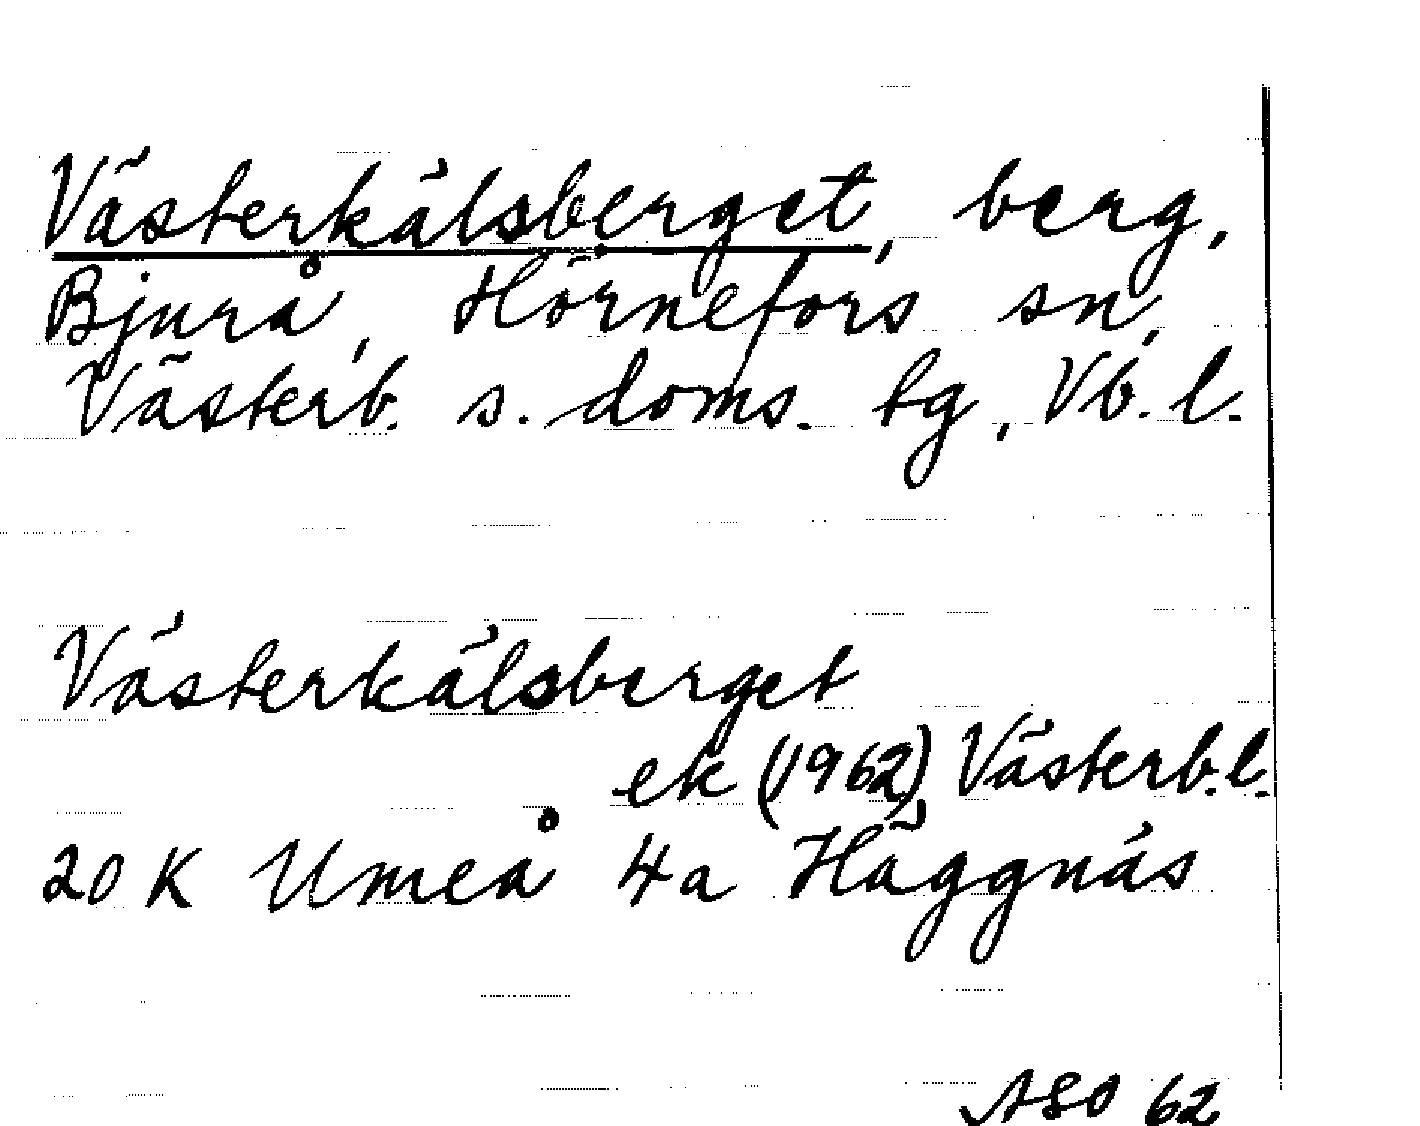 Västerkälsberget, berg,
Bjurå, Hörnefors sn,
Västerb. s. doms. tg, Vb. l.
Västerkälsberget
ek (1962) Västerb.l.
20 K Umeå 4a Häggnäs
ASO 62